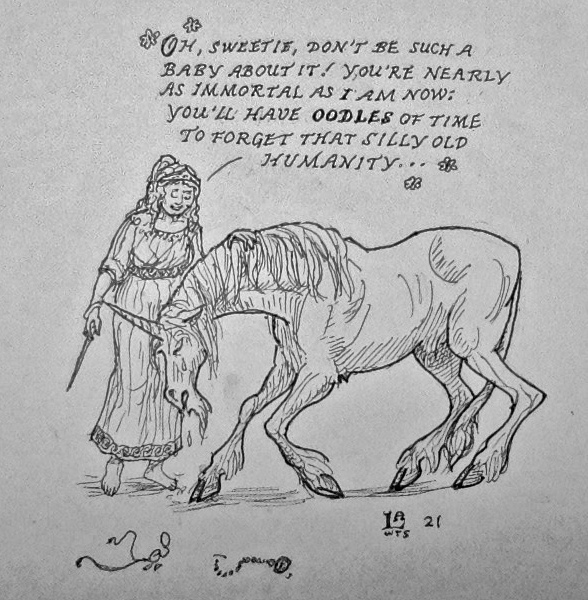 OH, SWEETIE, DON'T BE SUCH A
BABY ABOUT IT! YOU'RE NEARLY
AS IMMORTAL AS I AM NOW:
YOU'LL HAVE OODLES OF TIME
TO FORGET THAT SILLY OLD
HUMANITY...
LA 21
WTS